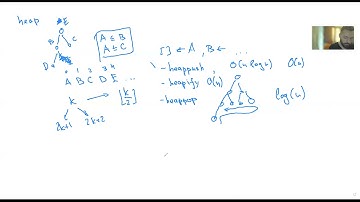 heap
E
C
D
A ≤ B
A ≤ C
0 1 2 3 4
A B C D E ...
k → ⌊k/2⌋
2k+1 2k+2
[] ← A, B ← ...
- heappush, O(n log n) O(n)
- heapify O(n)
- heappop log(n)